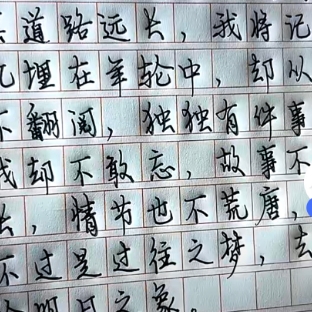 道路远长，我将记
忆埋在年轮中，却从
不翻阅，独独有件事
我却不敢忘，故事不
长，情节也不荒唐，
不过是过往之梦，去